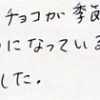 チョコが季節
になっている
した。